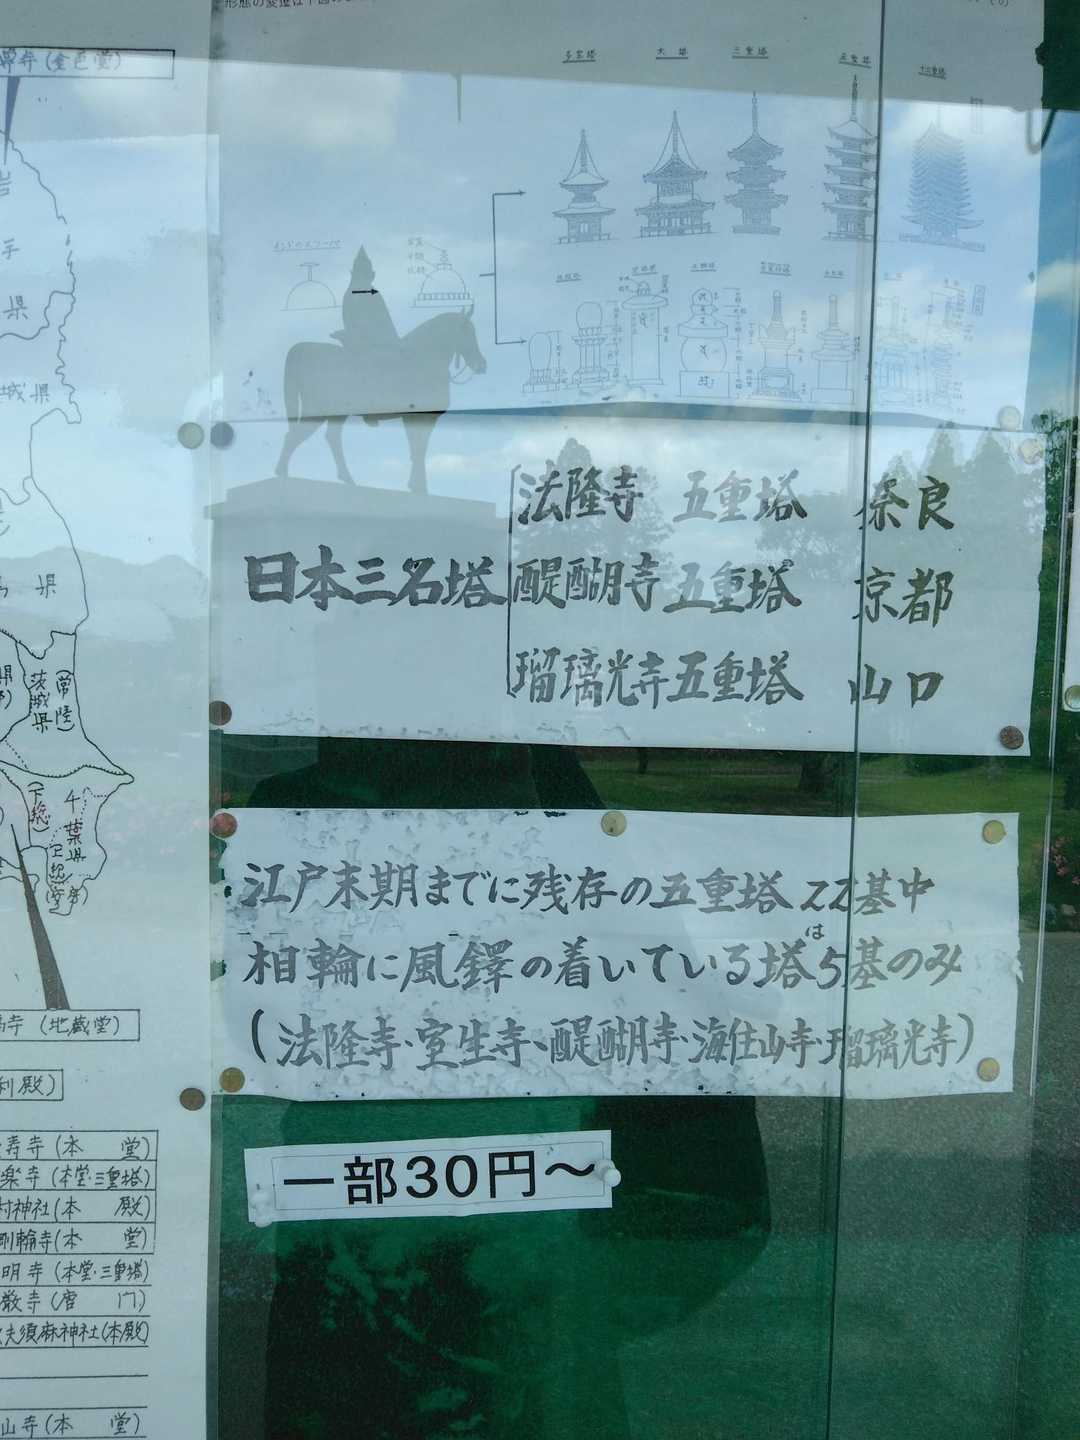 尊寺(金色堂)
岩
手
県
城県
県
茨城県
(常陸)
(下総)
千葉県
(地蔵堂)
利殿)
寿寺(本 堂)
楽寺(本堂・三重塔)
村神社(本 殿)
剛輪寺(本 堂)
明寺(本堂・三重塔)
厳寺(唐 門)
夫須麻神社(本殿)
山寺(本 堂)
多宝塔
大塔
三重塔
五重塔
十三重塔
日本三名塔
法隆寺 五重塔 奈良
醍醐寺五重塔 京都
瑠璃光寺五重塔 山口
江戸末期までに残存の五重塔22基中
相輪に風鐸の着いている塔は5基のみ
(法隆寺・室生寺、醍醐寺・海住山寺・瑠璃光寺)
一部30円～